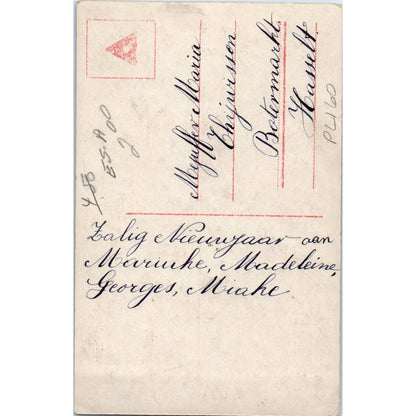 Mejuffer Maria
Thijwissen
Botermarkt
Hasselt
PL160
4.50
ES-A
2.00
Zalig Nieuwjaar aan
Maruike, Madeleine,
Georges, Miake.